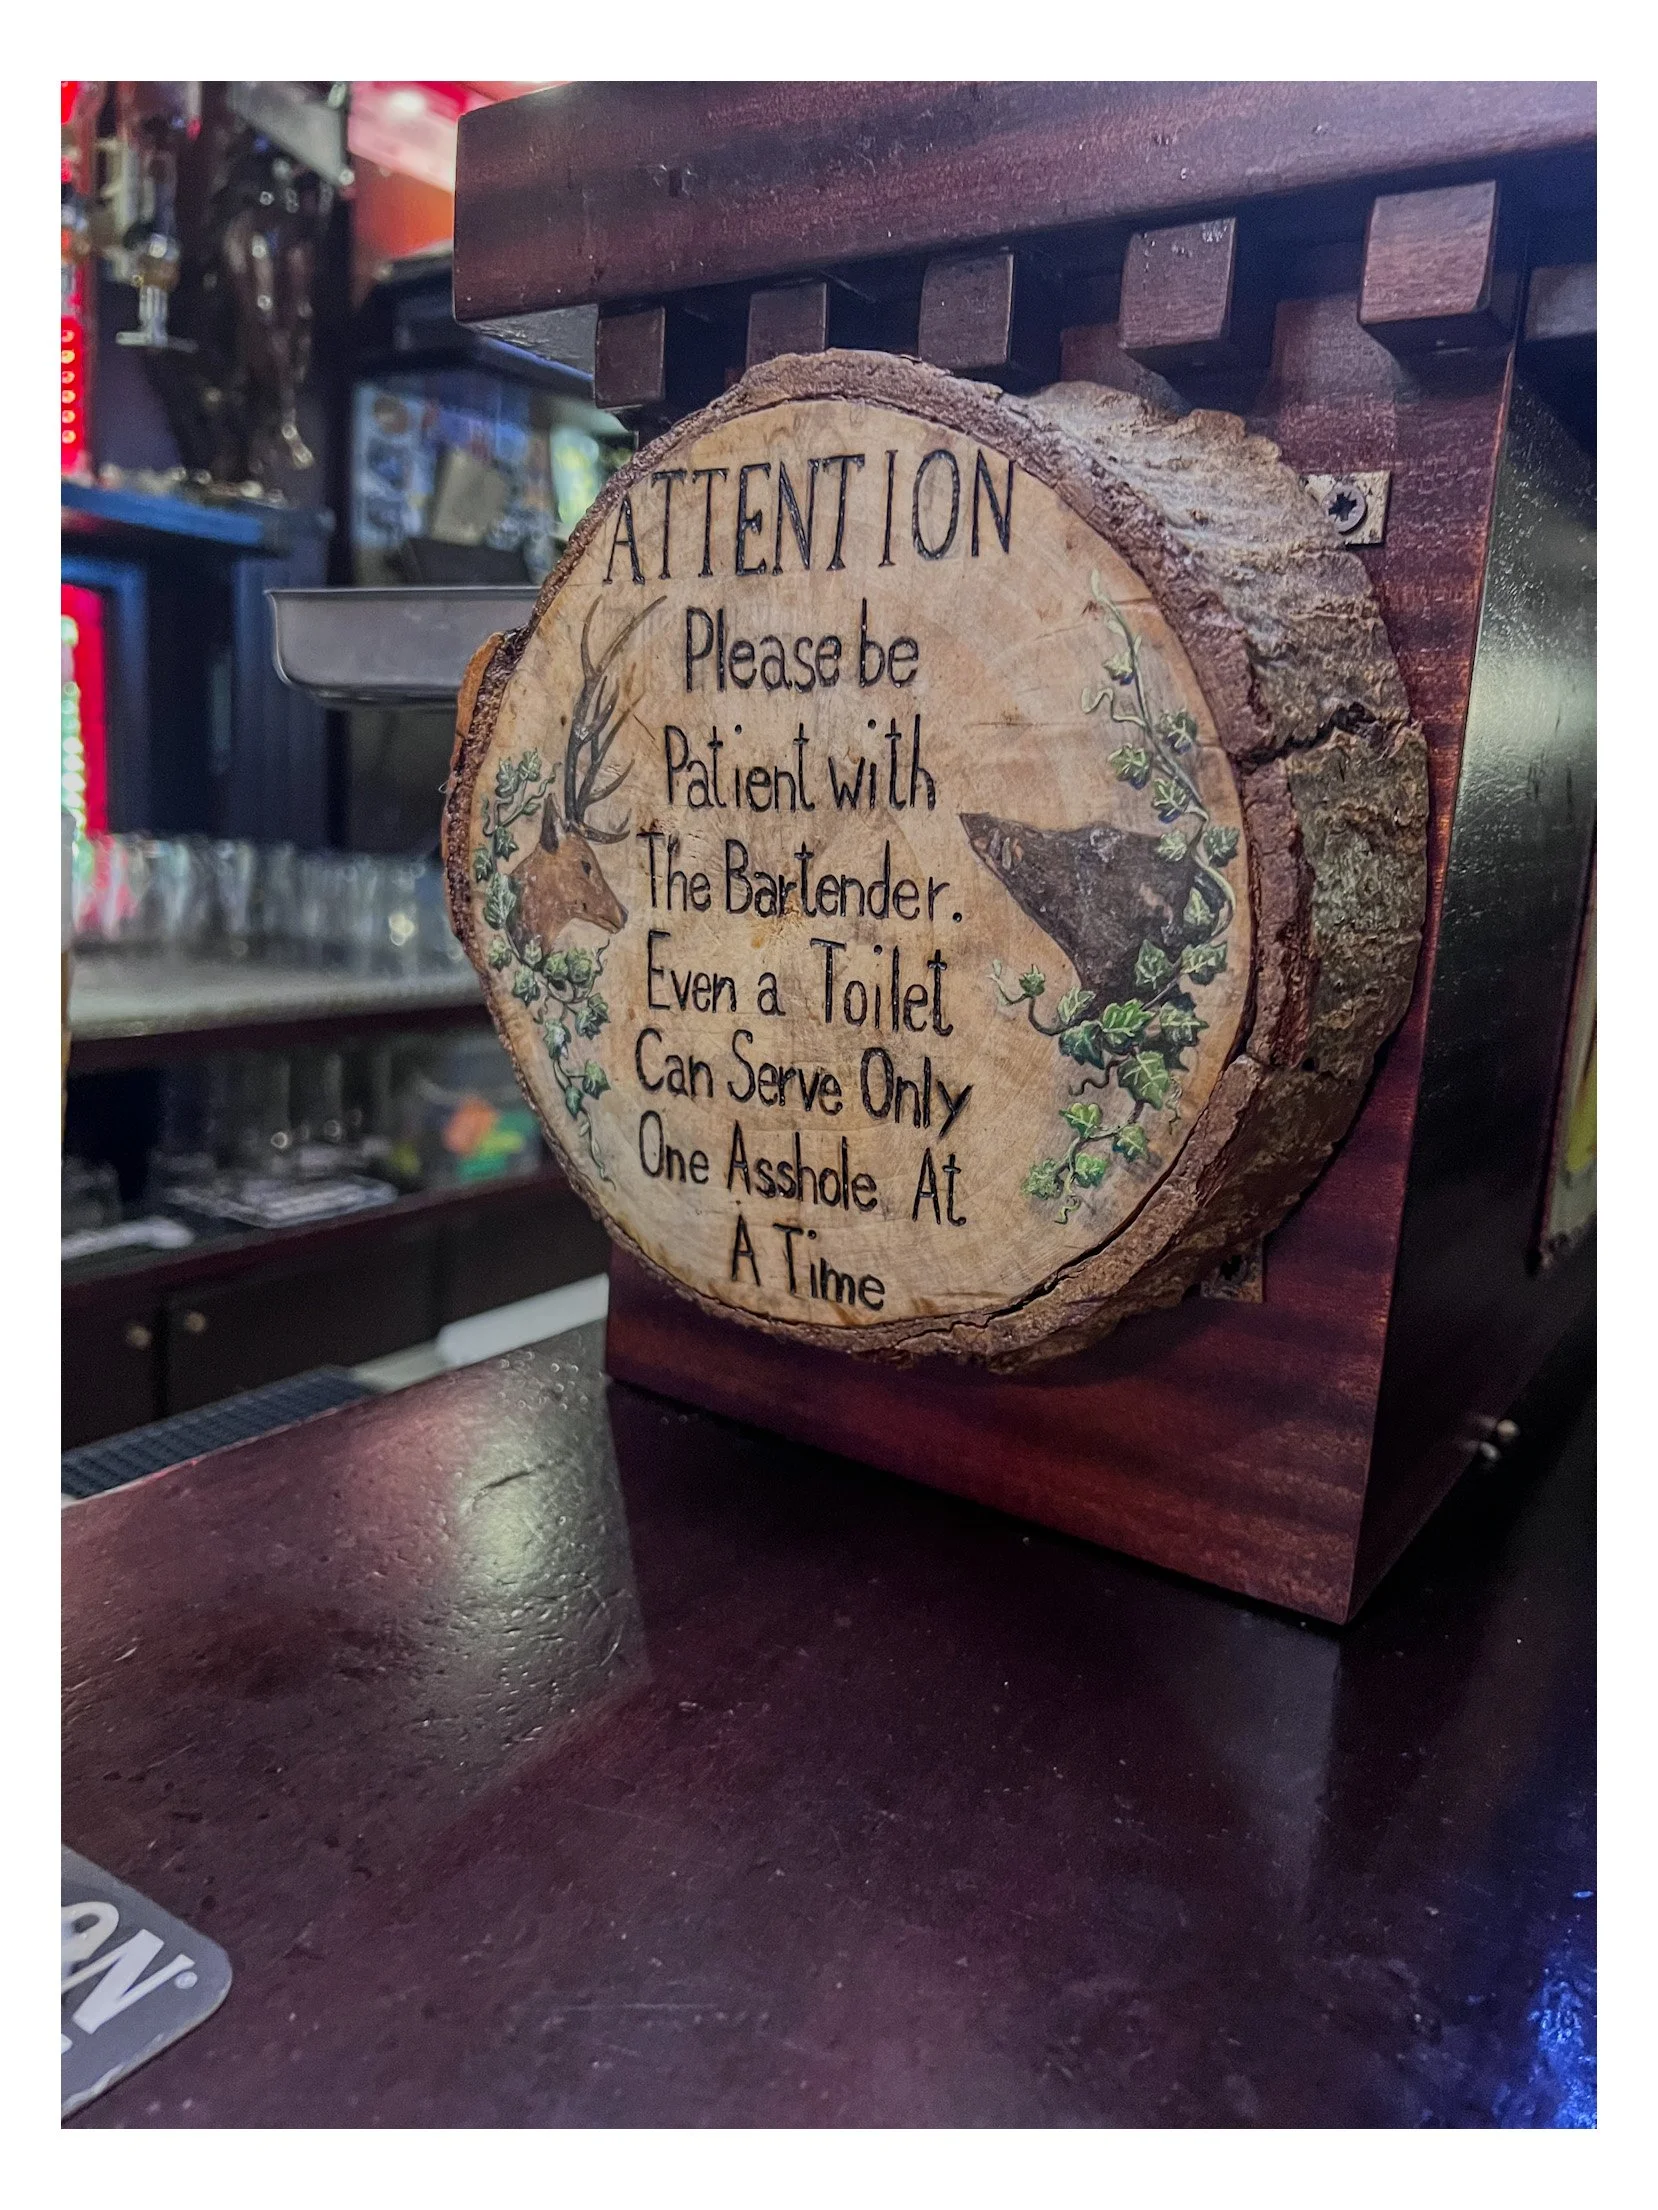 ATTENTION
Please be
Patient with
The Bartender.
Even a Toilet
Can Serve Only
One Asshole At
A Time
ON®